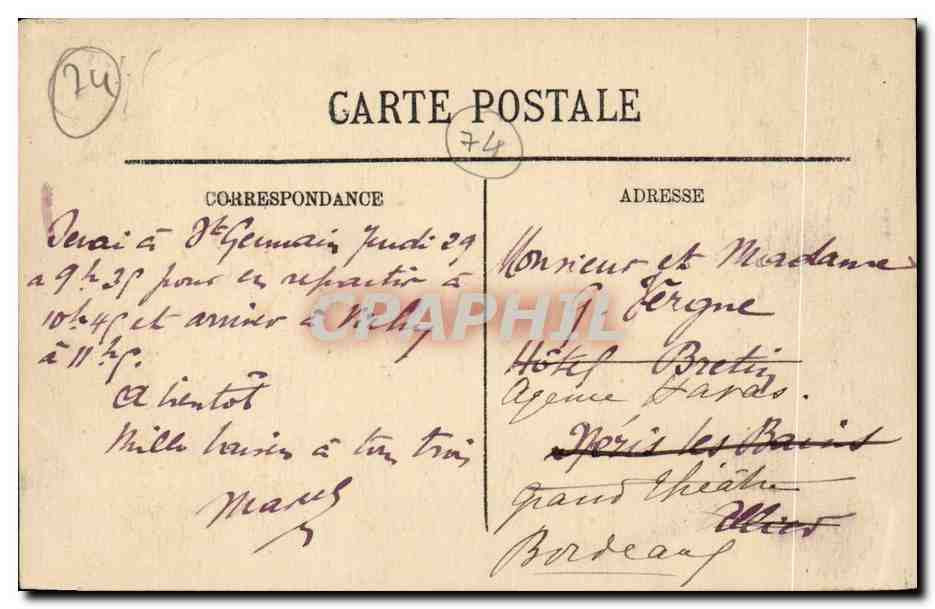 74
CARTE POSTALE
74
CORRESPONDANCE
Serai à St Germain Jeudi 29
a 9h35 pour en repartir à
10h45 et arriver à Vichy
à 11h5.
A bientôt
Mille baisers à tous trois
Marcel
ADRESSE
Monsieur et Madame
G. Vergne
Hôtel Bretin
Agence Havas.
Néris les Bains
Grand Théâtre
Allier
Bordeaux
CPAPHIL